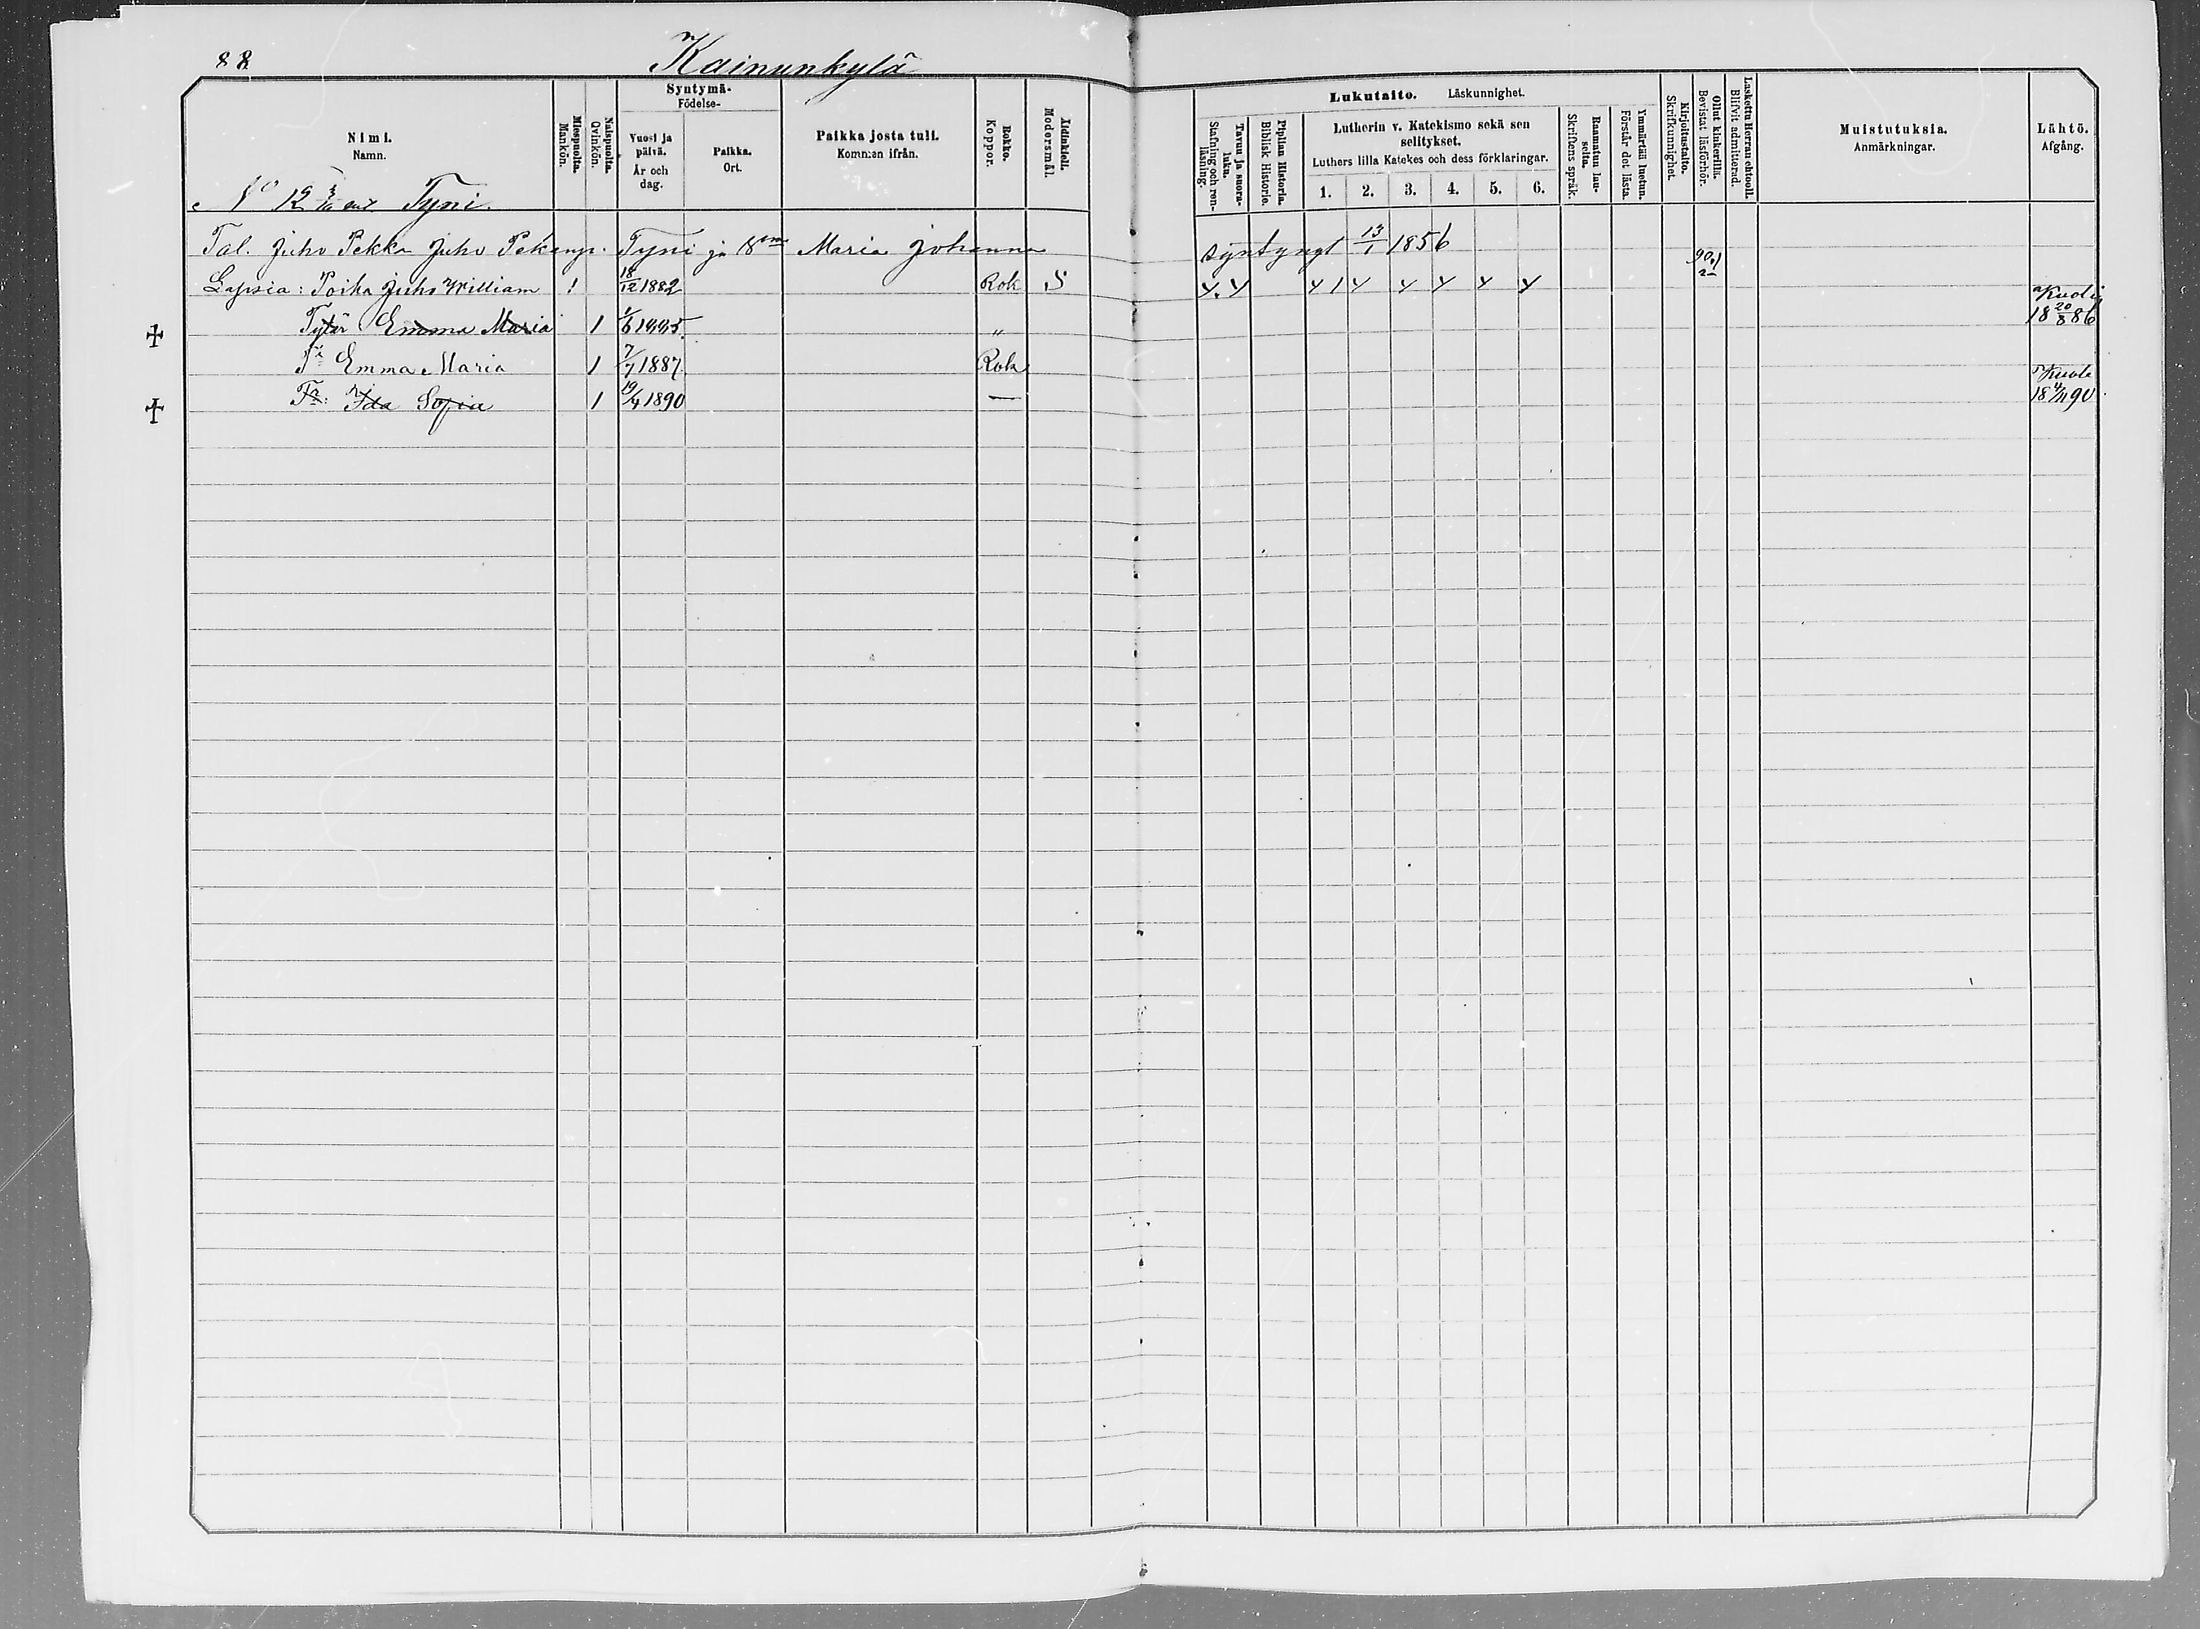 88
Kainunkylä
Nimi.
Namn.
Miespuolta.
Mankön.
Naispuolta.
Qvinkön.
Syntymä-
Födelse-
Vuosi ja päivä.
År och dag.
Paikka.
Ort.
Paikka josta tuli.
Kommen ifrån.
Rokko.
Koppor.
Äidinkieli.
Modersmål.
Lukutaito. Läskunnighet.
Tavuu ja suora-luku.
Stafning och ren-läsning.
Piplian Historia.
Biblisk Historie.
Lutherin v. Katekismo sekä sen
selitykset.
Luthers lilla Katekes och dess förklaringar.
1. 2. 3. 4. 5. 6.
Raamatun lau-seita.
Skriftens språk.
Ymmärtää luetun.
Förstår det lästa.
Kirjoitustaito.
Skrifkunnighet.
Ollut kinkerillä.
Bevistat läsförhör.
Laskettu Herran ehtooll.
Blifvit admitterad.
Muistutuksia.
Anmärkningar.
Lähtö.
Afgång.
No 12 Tyni.
Tal. Juho Pekka Juho Pekanp. Tyni ja Maria Johanna syntynyt 13/1 1856
Lapsia: Poika Juho William 1 18/12 1882 Rok S 4.4 4 1 4 4 4 4 4
Tytär Emma Maria 1 1/6 1885 " Kuoli 18 20/8 86
Tr Emma Maria 1 7/7 1887 Rok
Tr: Ida Sofia 1 19/4 1890 — Kuoli